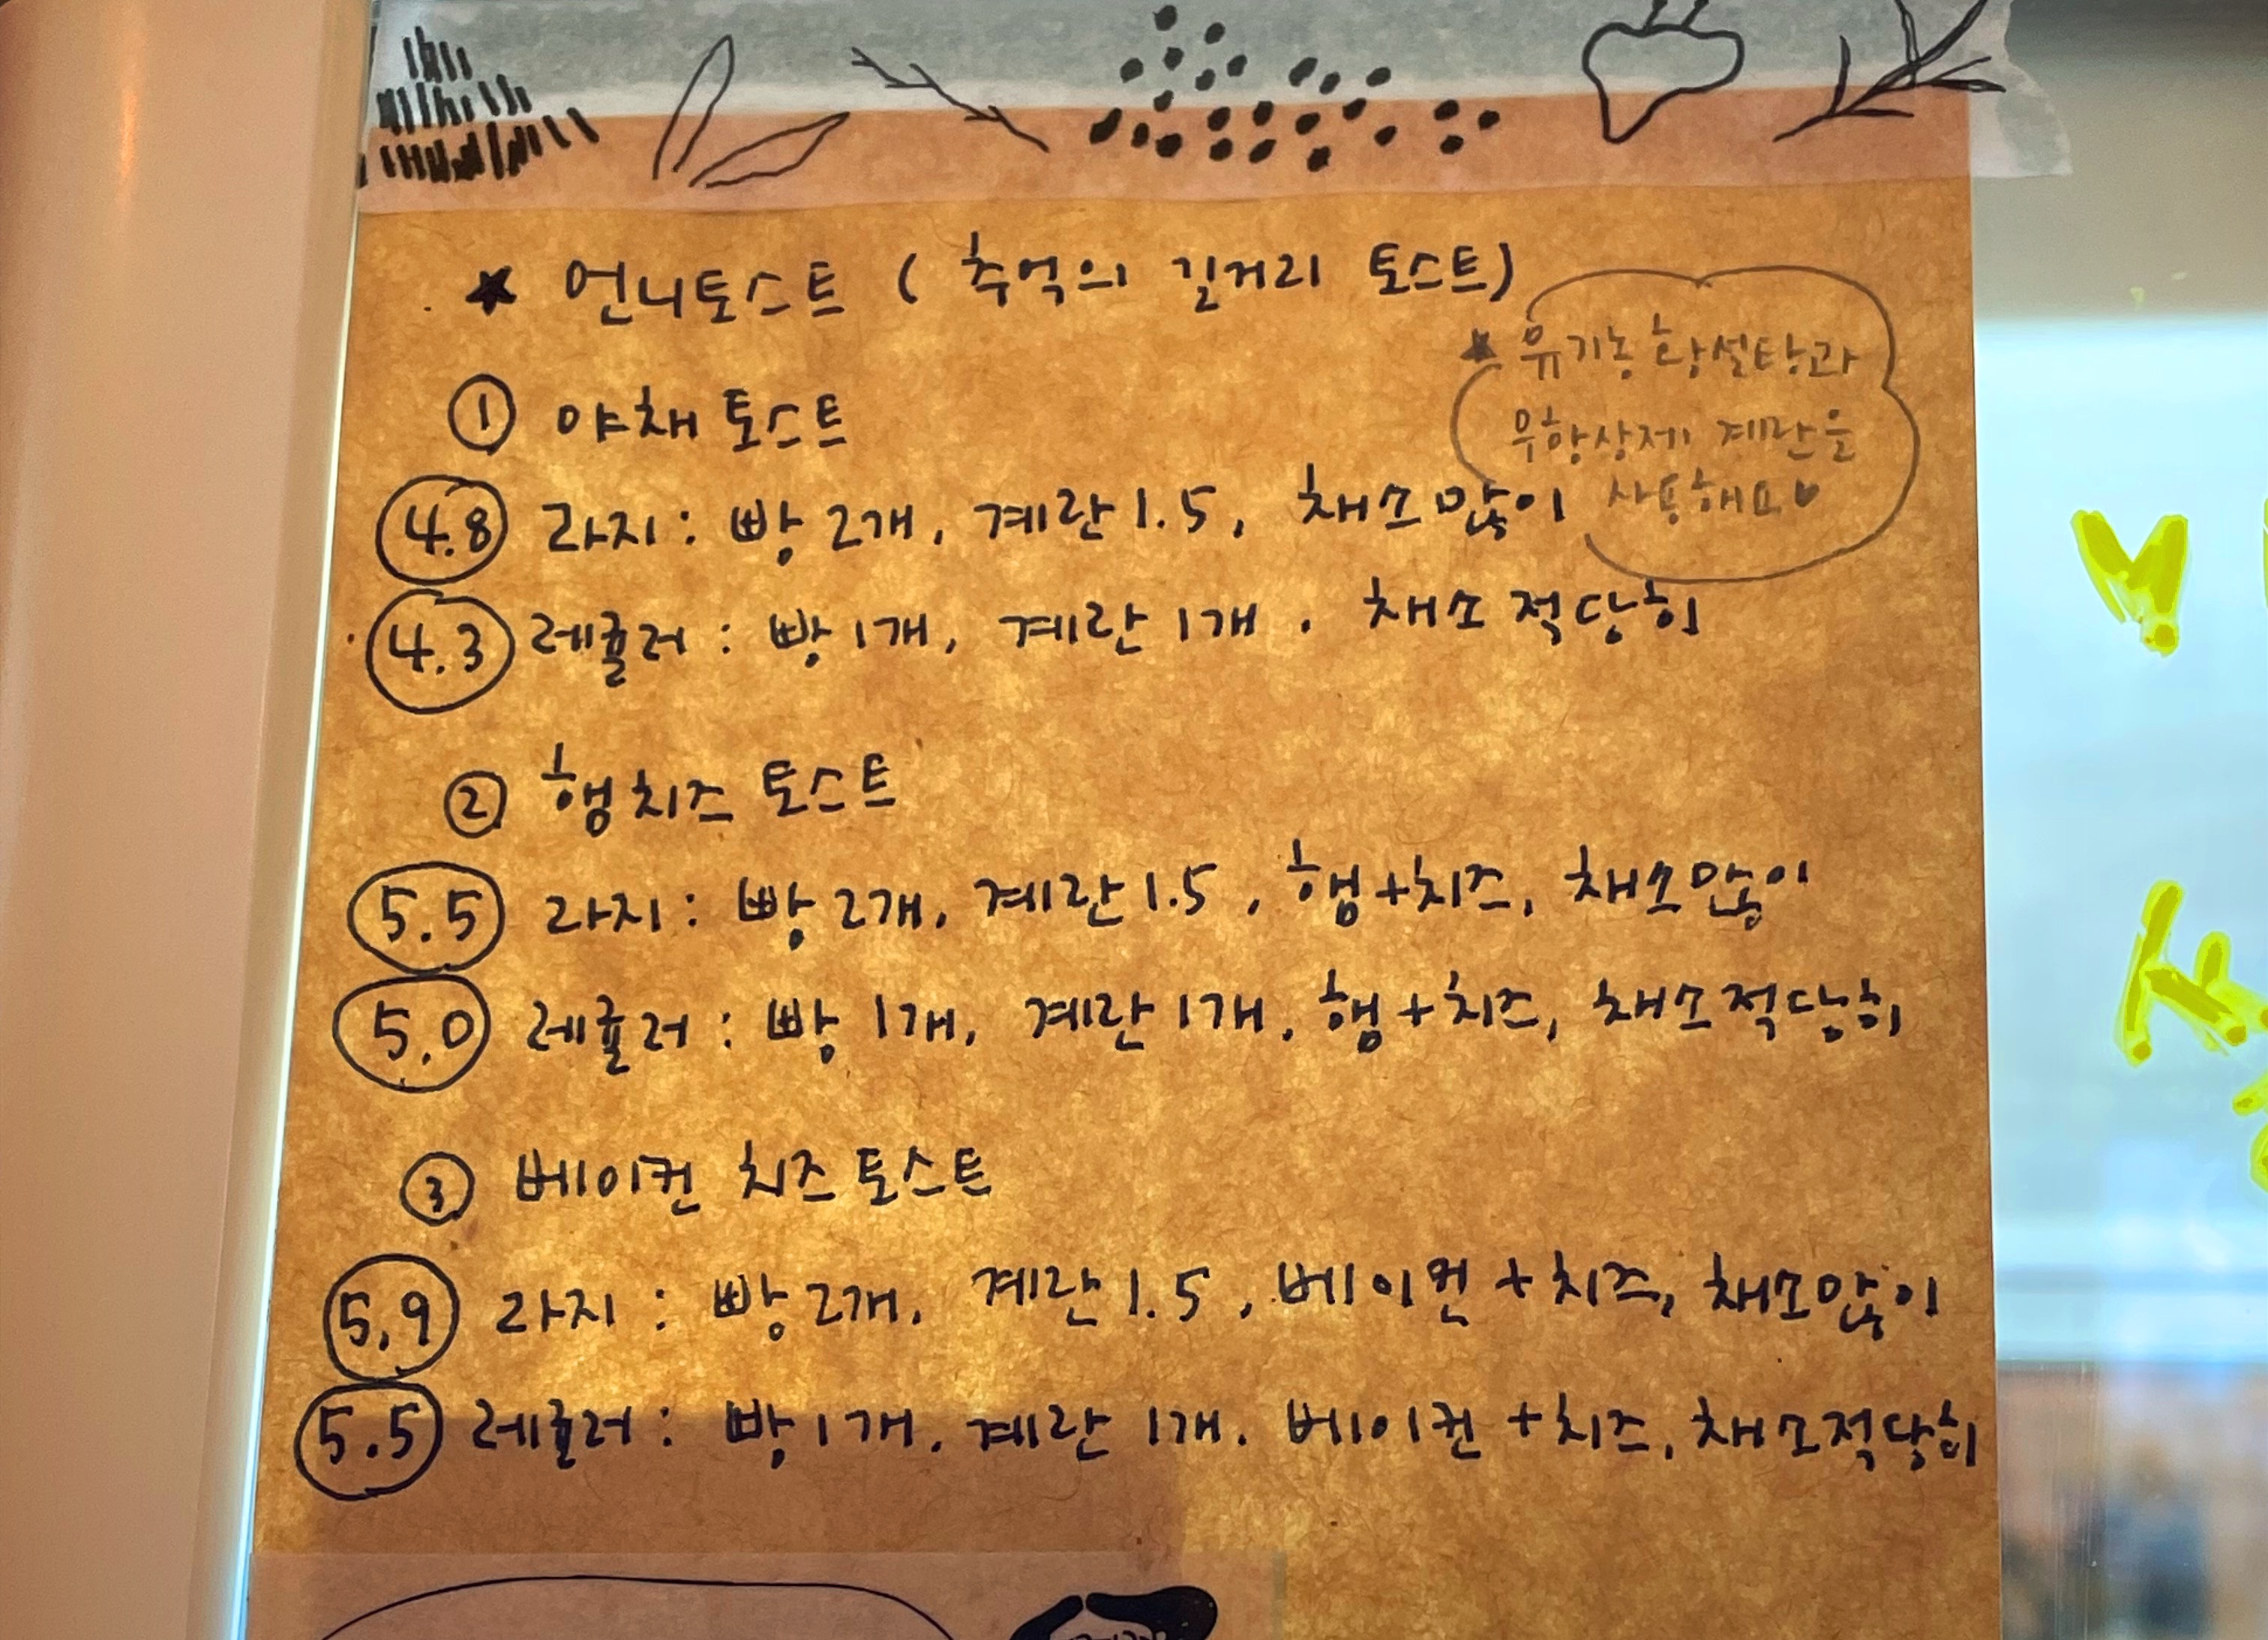 ★ 언니토스트 ( 추억의 길거리 토스트)
★ 유기농 황설탕과
무항생제 계란을
사용해요♥
① 야채 토스트
4.8 라지 : 빵 2개, 계란 1.5, 채소 많이
4.3 레귤러 : 빵 1개, 계란 1개, 채소 적당히
② 햄 치즈 토스트
5.5 라지 : 빵 2개, 계란 1.5, 햄+치즈, 채소많이
5.0 레귤러 : 빵 1개, 계란 1개, 햄+치즈, 채소적당히
③ 베이컨 치즈 토스트
5.9 라지 : 빵 2개, 계란 1.5, 베이컨 + 치즈, 채소많이
5.5 레귤러 : 빵 1개, 계란 1개. 베이컨 + 치즈, 채소적당히